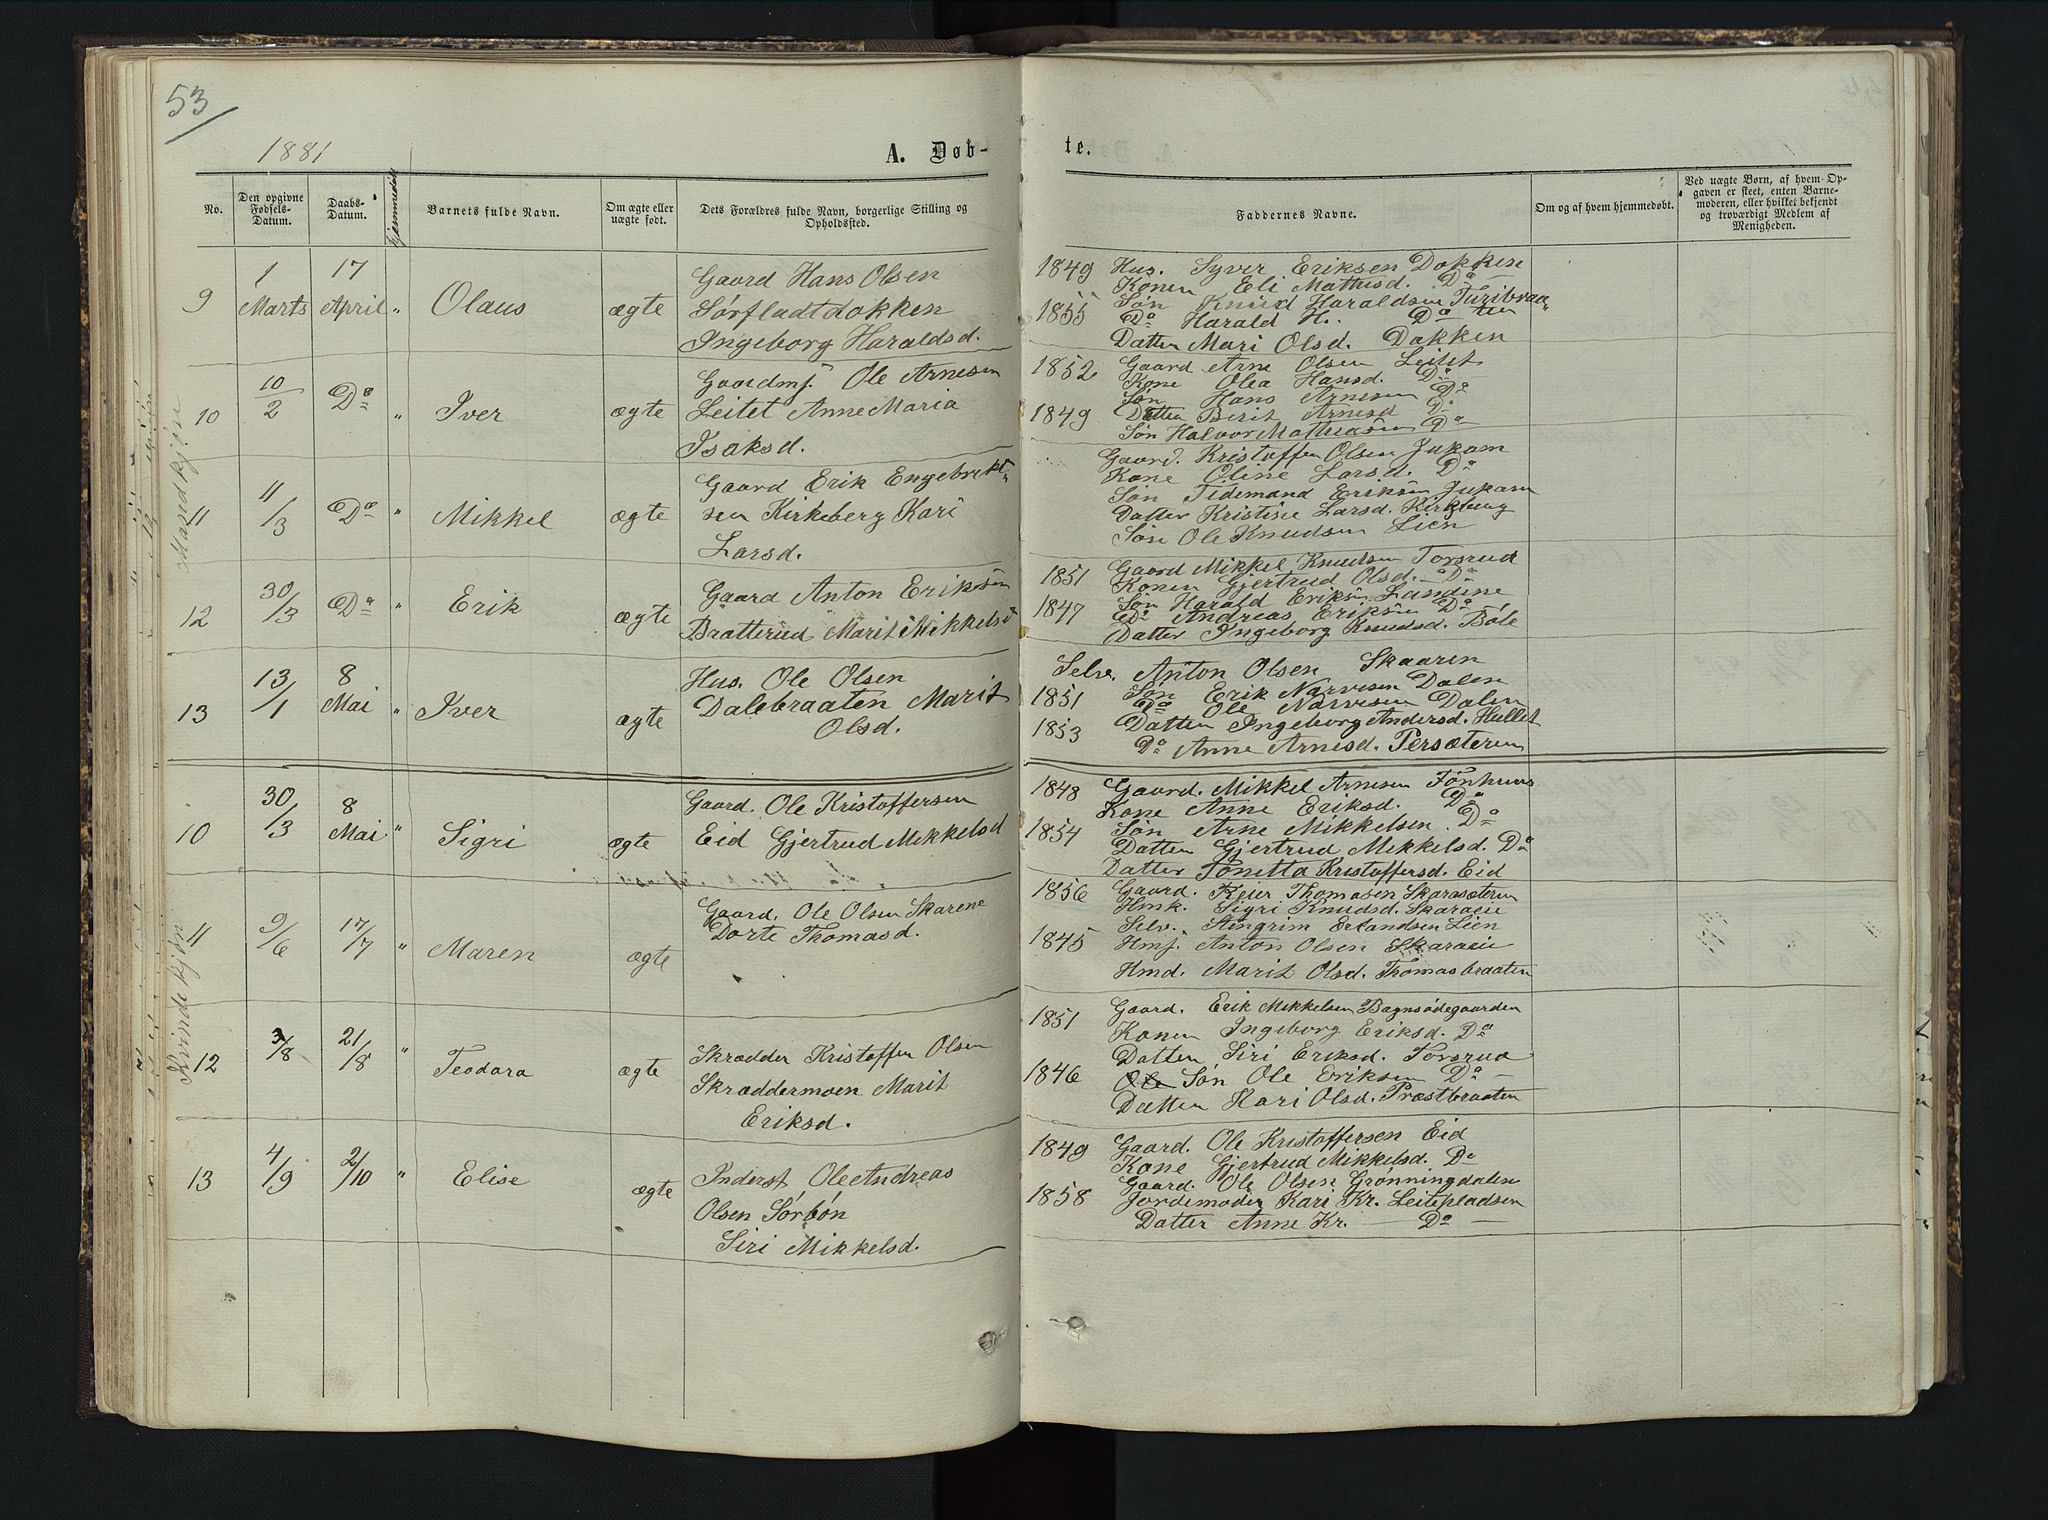 53
1881
A. Døb-
te.
No.
Den opgivne Fødsels-Datum.
Daabs-Datum.
Hjemmedøbt
Barnets fulde Navn.
Om ægte eller uægte født.
Dets Forældres fulde Navn, borgerlige Stilling og Opholdssted.
Faddernes Navne.
Om og af hvem hjemmedøbt.
Ved uægte Børn, af hvem Op-
gaven er skeet, enten Barne-
moderen, eller hvilket bekjendt
og troværdigt Medlem af
Menigheden.
Mandkjøn
9 1 Marts 17 April " Olaus ægte
Gaard Hans Olsen
Sørfladtdokken
Ingeborg Haraldsd.
1849 Hus. Syver Eriksen Dokken
Konen Eli Mathisd. Do
1855 Søn Knud Haraldsen Turibraa-
Do Harald H. Do ten
Datten Mari Olsd. Dokken
10 10/2 Do " Iver ægte
Gaardmf. Ole Arnesen
Leitet Anne Maria
Isaksd.
1852 Gaard Arne Olsen Leitet
Kone Olea Hansd. Do
Søn Hans Arnesen Do
1849 Datten Berit Arnesd Do
Søn Halvor Mathiasen Do
11 11/3 Do " Mikkel ægte
Gaard Erik Engebrekt-
sen Kirkeberg Kari
Larsd.
Gaard. Kristoffen Olsen Jukam
Kone Oline Larsd. Do
Søn Tidemand Eriksen Jukam
Datter Kristine Larsd. Kirkberg
Søn Ole Knudsen Lien
12 30/3 Do " Erik ægte
Gaard Anton Eriksen
Bratterud Marit Mikkelsd
1851 Gaard Mikkel Knudsen Torsrud
Konen Gjertrud Olsd. Do
1847 Søn Harald Eriksen Sandene
Do Andreas Eriksen Do
Datter Ingeborg Knudsd. Bøle
13 13/1 8 Mai " Iver ægte
Hus. Ole Olsen
Dalebraaten Marit
Olsd.
Selv. Anton Olsen Skaaren
1851 Søn Erik Narvesen Dalen
Do Ole Narvesen Dalen
1853 Datten Ingeborg Andersd. Hullet
Do Anne Arnesd. Persæteren
Kvindekjøn
10 30/3 8 Mai " Sigri ægte
Gaard. Ole Kristoffersen
Eid Gjertrud Mikkelsd
1848 Gaard. Mikkel Arnesen Fønhuus
Kone Anne Eriksd. Do
1854 Søn Arne Mikkelsen. Do
Datten Gjertrud Mikkelsd. Do
Datter Tonetta Kristoffersd. Eid
11 9/6 17/7 " Maren ægte
Gaard. Ole Olsen Skarene
Dorte Thomasd.
1856 Gaard. Peier Thomasen Skarasæteren
Hmk. Sigri Knudsd. Skaraeie
Selv. Stengrim Erlandsen Lien
1845 Hmf. Anton Olsen Skaraeie
Hmd. Marit Olsd. Thomasbraaten
12 3/8 21/8 " Teodora ægte
Skrædder Kristoffen Olsen
Skræddermoen Marit
Eriksd.
1851 Gaard. Erik Mikkelsen Bagnsødegaarden
Konen Ingeborg Eriksd. Do
Datten Siri Eriksd. Torsrud
1846 Ole Søn Ole Eriksen Do
Datten Kari Olsd. Præstbraaten
13 4/9 2/10 " Elise ægte
Inderst Ole Andreas
Olsen Sørbøn
Siri Mikkelsd.
1849 Gaard. Ole Kristoffersen Eid
Kone Gjertrud Mikkelsd. Do
Gaard. Ole Olsen Grønningdalen
1858 Jordemoder Kari Kr. Leitepladsen
Datter Anne Kr. — Do —